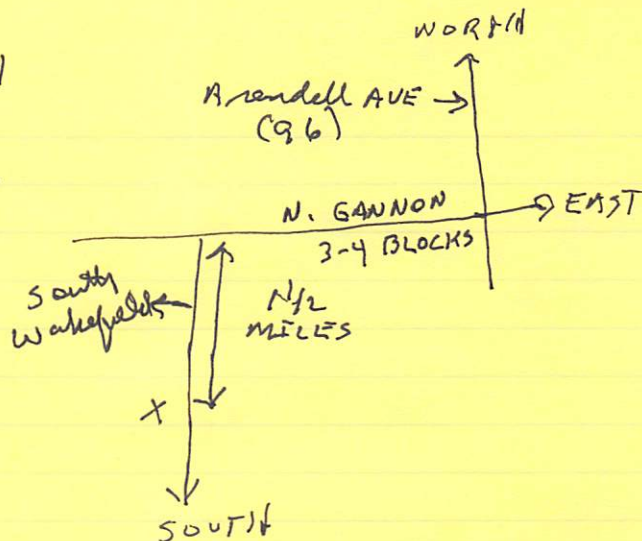 NORTH
Arendell AVE
(96)
N. GANNON
EAST
3-4 BLOCKS
South
Wakefield
MILES
X
SOUTH